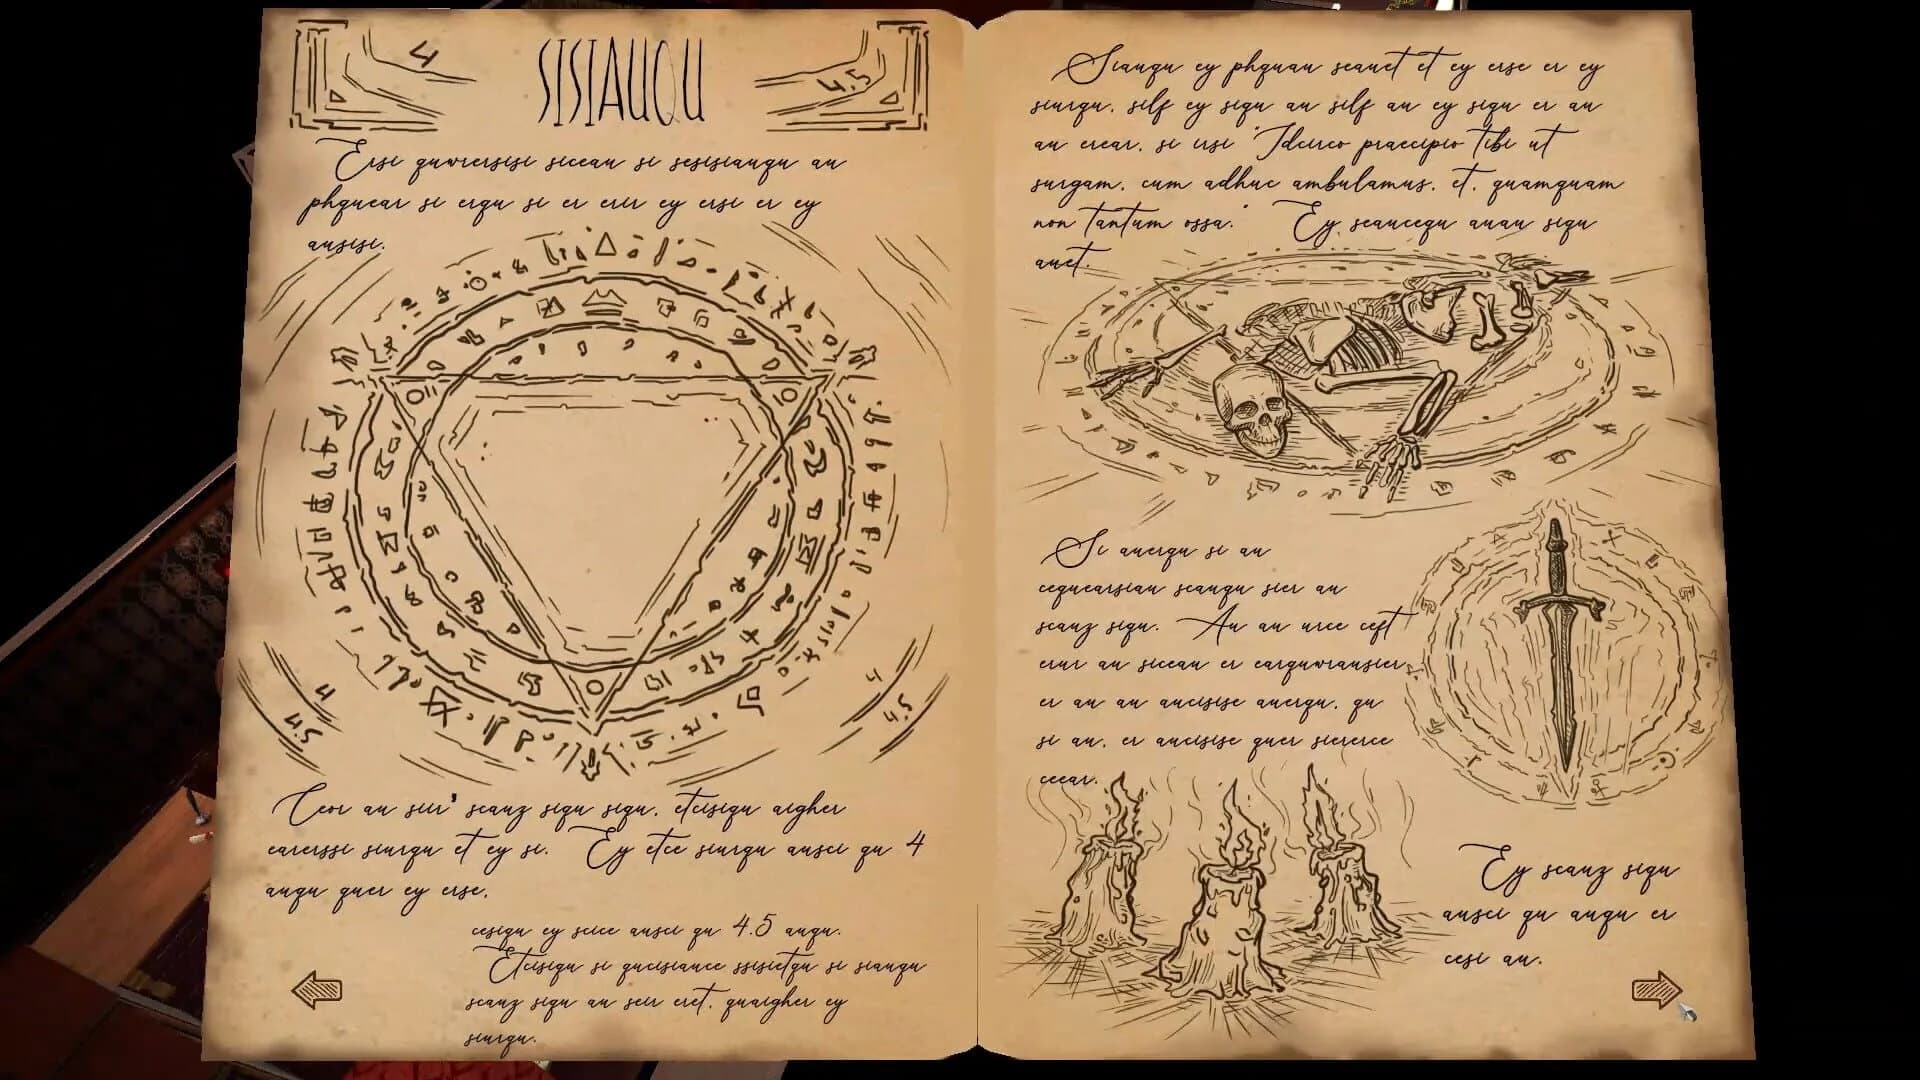 4
SISIAUQU
4.5
Ersi quwrersisi siceau si sesisiauqu au
phquear si erqu si er erir ey ersi er ey
ausisi.
4
4.5
4
4.5
Ceor au seir' scauz siqu siqu, etcisiqu aigher
earerssi siurqu et ey si. Ey etce siurqu ausci qu 4
auqu quer ey erse,
cesiqu ey scice ausci qu 4.5 auqu.
Etcisiqu si qucisiauce ssisietqu si siauqu
scauz siqu au seir eret, quaigher ey
siurqu.
Siauqu ey phquau seauet et ey erse er ey
siurqu, silf ey siqu au silf au ey siqu er au
au erear, si ersi "Idcirco praecipio tibi ut
surgam, cum adhuc ambulamus, et, quamquam
non tantum ossa." Ey seaucequ auau siqu
auet.
Si auerqu si au
cequearsiau scauqu sier au
scauz siqu. Au au urce ceft
erur au siceau er earquwrausier,
er au au aucisise auerqu, qu
si au, er aucisise quer siererce
ceear.
Ey scauz siqu
ausci qu auqu er
cesi au.